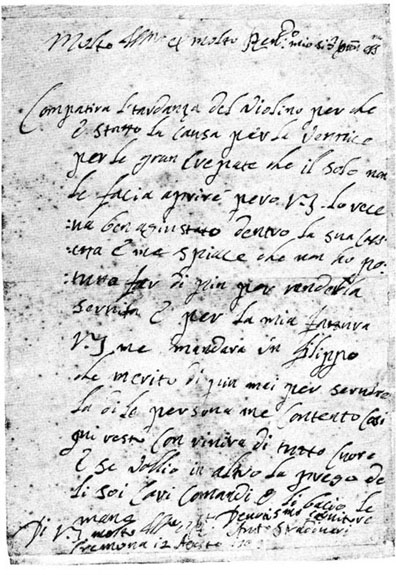 Molto Ill^re et molto Rev^do mio Sig^r
Compatira la tardanza del Violino per che
è stato la Causa per la Vernice
per le gran Crepate che il sole non
le facia aprire pero V.S. lo rece
vera ben agiustato dentro la sua Cas
setta è me spiace che non ho po
tuto far di piu per renderla
servita è per la mia fatura
V.S. me mandara un filippo
che merito di piu mei per servire
la di le persona me Contento Cosi
qui resto Con rivirirla di tutto Cuore
è se Vallio in altro la prego de
li soi Cari Comandi è li bacio le
mane
Di V.S. molto Ill^re Devotissimo servitore
Cremona 12 Agosto Anto Stradivari